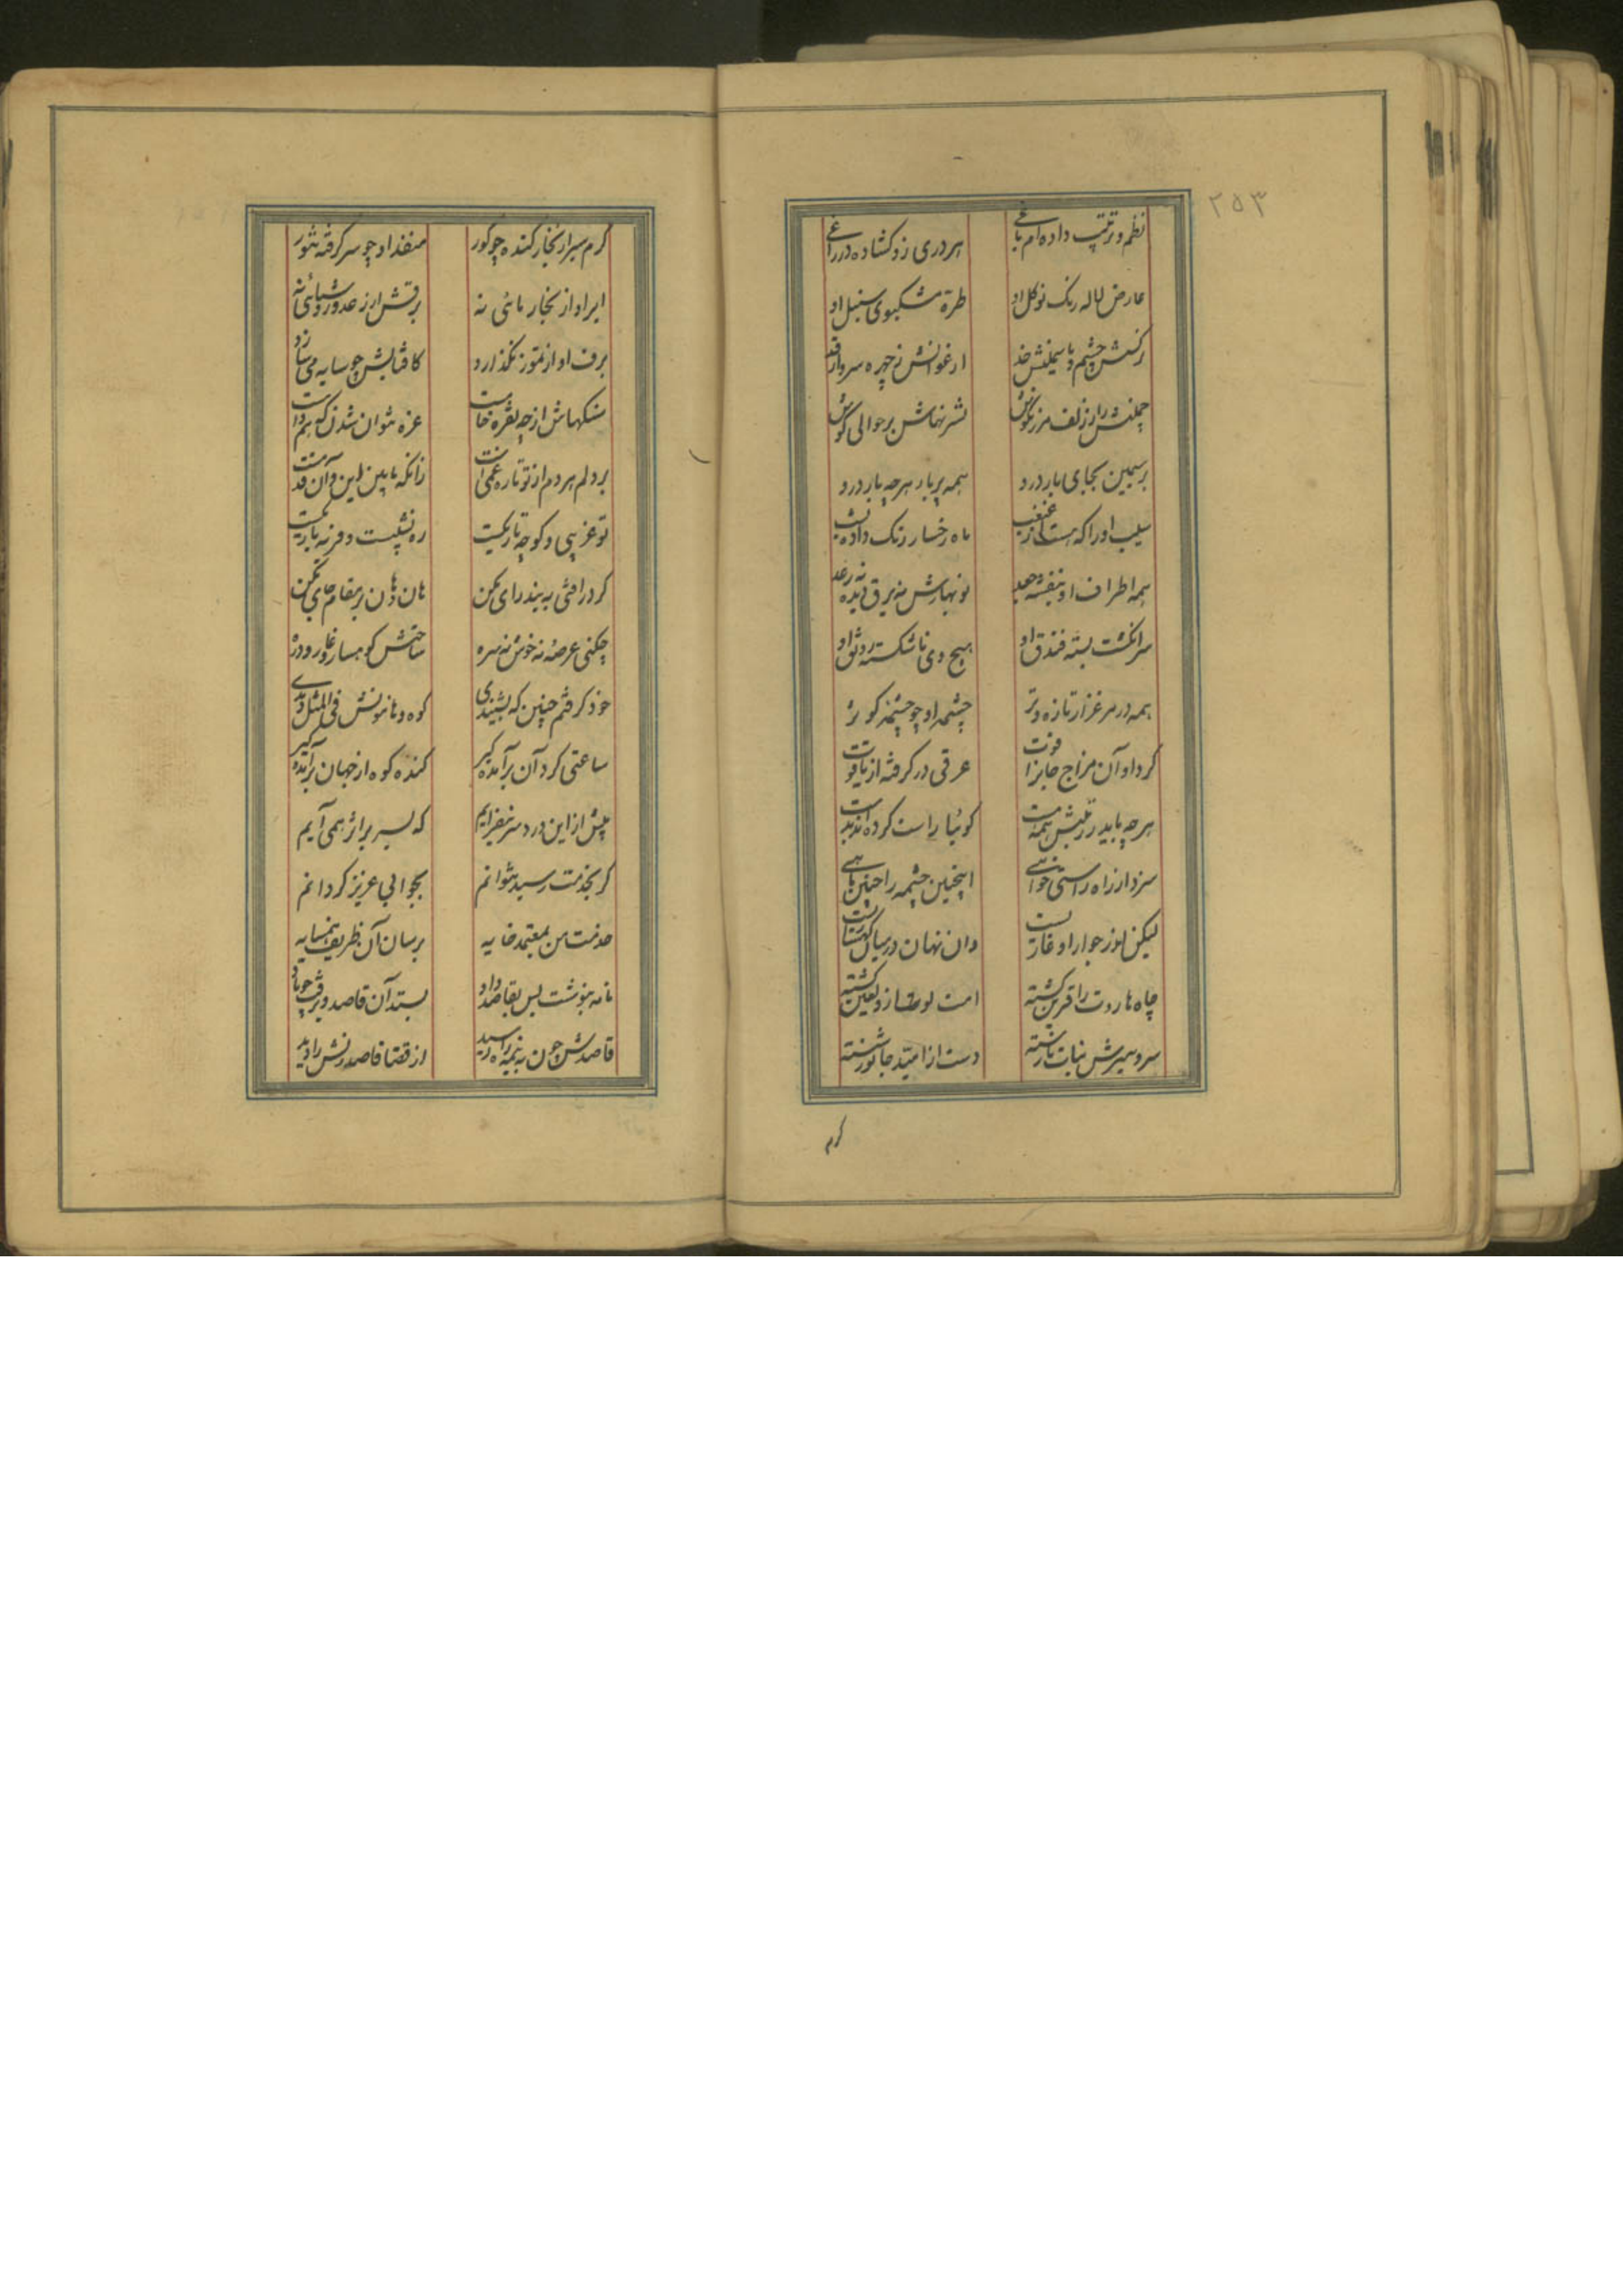 ۲۵۳
نظم و ترتیب داده‌ام باغی هر دری زو گشاده در راغی
عارض لاله رنگ نوگل او طرهٔ مشکبوی سنبل او
نرگسش چشم و یاسمینش خد ارغوانش چهره سرو از قد
چمنش را ز زلف مرزنگوش بر حوالی گوش
بر سیمین بجای بار درو همه پر بار هرچه بار درو
سیب او را که هست از غبغب ماه رخسار رنگ داده
همه اطراف او بنفشه و جعد نوبهارش نه برق دیده نه رعد
سرانگشت بسته فندق او هیچ دی ناشکسته رونق او
همه در مرغزار تازه و تر چشمه او چو چشمه کوثر
کرد او آن مزاج جانرا قوت عرقی در گرفته از یاقوت
هرچه باید ز زینتش همه هست گوئیا راست کرده‌اند بدست
سزد ار زاه راستی خواهی اینچنین چشمه را چنین ماهی
لیکن اندر جوار او غاریست وان نهان در میان
چاه هاروت را قرین گشته امت لوط ازو لعین گشته
سر و سیرش نبات نارسته دست از امید جانور شسته
گرم
گرم سیر از بخار گنده چو گور منفذ او چو سر گرفته تنور
ابر او از بخار مائی نه برقش ار زعد و روشنائی نه
برف او از تموز نگذارد کافتابیش چو سایه می‌سازد
سنگهاش ارچه نقره خامست غره نتوان شدن که هم دامست
بر دلم هر دم از تو تازه غمیست زانکه مابین این و آن قدمیست
تو غریبی و کوچه تاریکیست ره نشیبست و خرنه باریکیست
گر در افتی به بند رای مکن هان و هان بر مقام جای مکن
چکنی عرصهٔ نه خوش نه سره ساحتش کوهسار و غار و دره
خود گرفتم چنین که بپسندی کوه و هامونش فی المثل دیدی
ساعتی گرد آن برآمده گیر کنده کوه از جهان برآمده گیر
بیش از این درد سر نیفزایم که بسر بر اثر همی آیم
گر بخدمت رسید نتوانم بجوابی عزیز گردانم
خدمت من بمعتمد خایه برسان آن ظریف همسایه
نامه بنوشت پس بقاصد داد بستد آن قاصد و برفت چو باد
قاصدش چون به نیمه راه رسید از قضا قاصد منش را دید